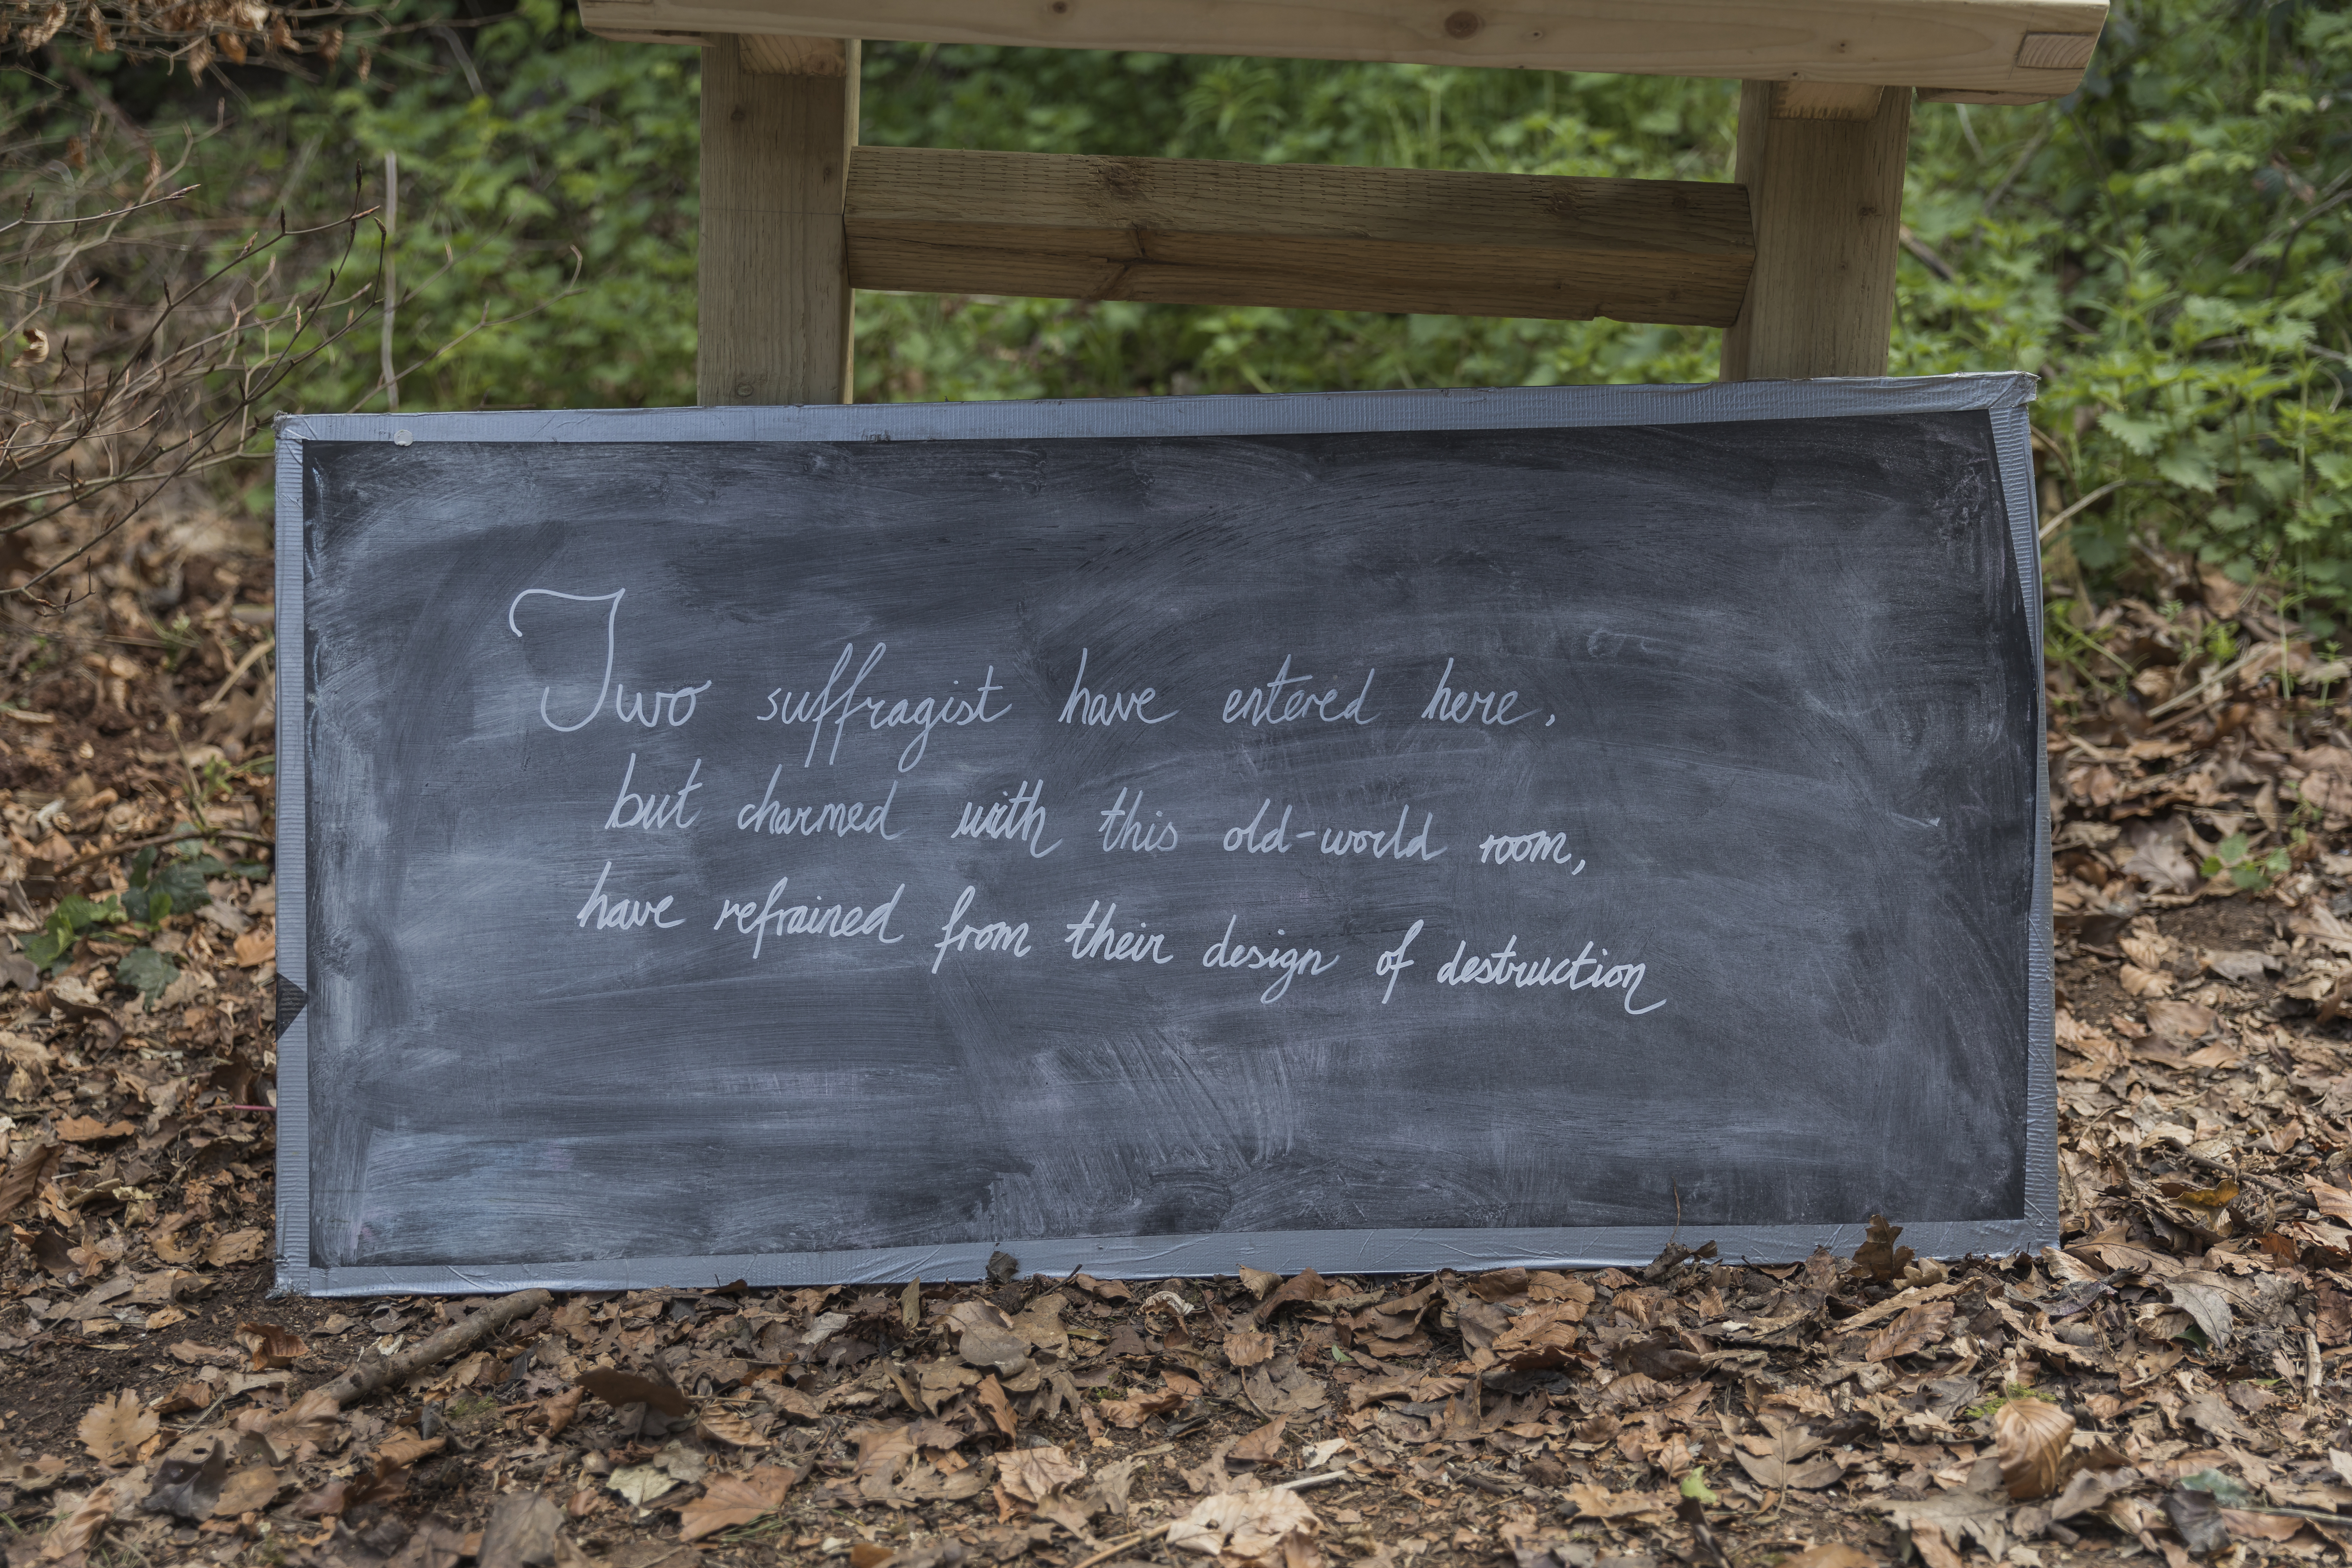 Two suffragist have entered here,
but charmed with this old-world room,
have refrained from their design of destruction